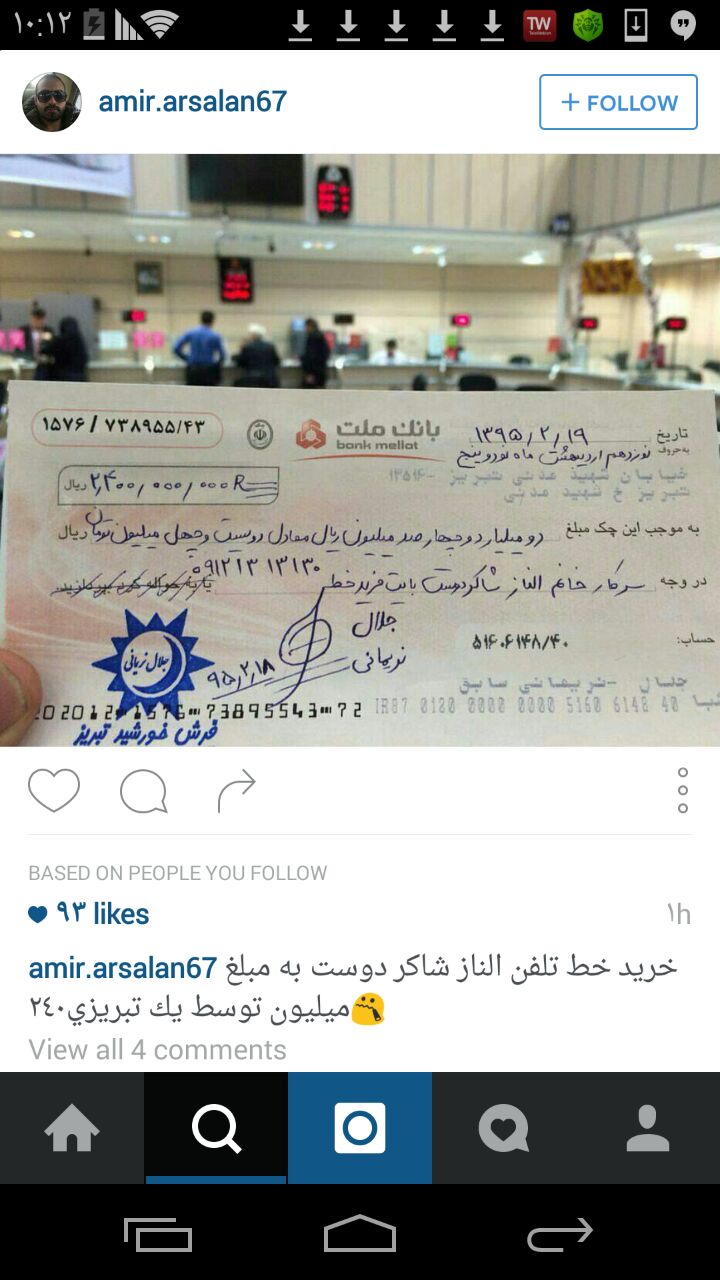 ۱۰:۱۲
TW
amir.arsalan67
+ FOLLOW
۱۵۷۶ / ۷۳۸۹۵۵/۴۳
بانك ملت
bank mellat
تاریخ ۱۳۹۵/۲/۱۹
به‌حروف نوزدهم اردیبهشت ماه نود و پنج
خیابان شهید مدنی تبریز -۱۳۵۱۶
تبریز خ شهید مدنی
۲,۴۰۰,۰۰۰,۰۰۰R ریال
به موجب این چک مبلغ دو میلیارد و چهارصد میلیون ریال معادل دویست و چهل میلیون تومان ریال
در وجه سرکار خانم الناز شاکردوست بابت خرید خط ۰۹۱۲۱۳۱۳۱۳۰
حساب: ۵۱۶۰۶۱۴۸/۴۰
جلال
نریمانی
۹۵/۲/۱۸
جلال نریمانی
IR87 0120 0000 0000 5160 6148 40
فرش خورشید تبریز
BASED ON PEOPLE YOU FOLLOW
۹۳ likes
۱h
amir.arsalan67 خرید خط تلفن الناز شاکر دوست به مبلغ
۲٤۰میلیون توسط یك تبریزي
View all 4 comments